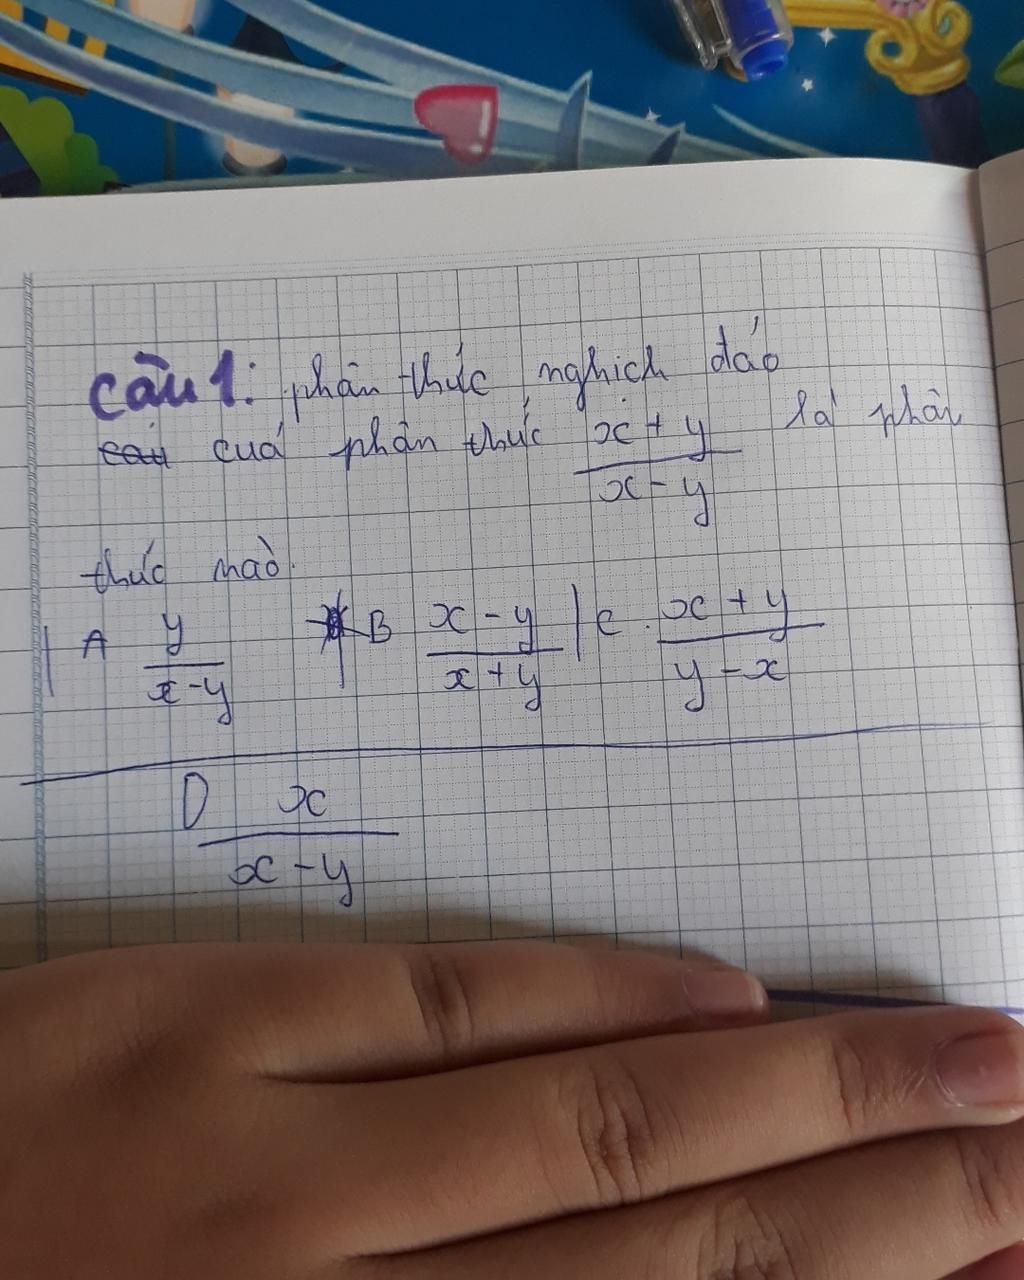 Câu 1: phân thức nghịch đảo
của phân thức x + y / x - y là phân
thức nào.
A y / x - y B x - y / x + y C. x + y / y - x
D x / x - y